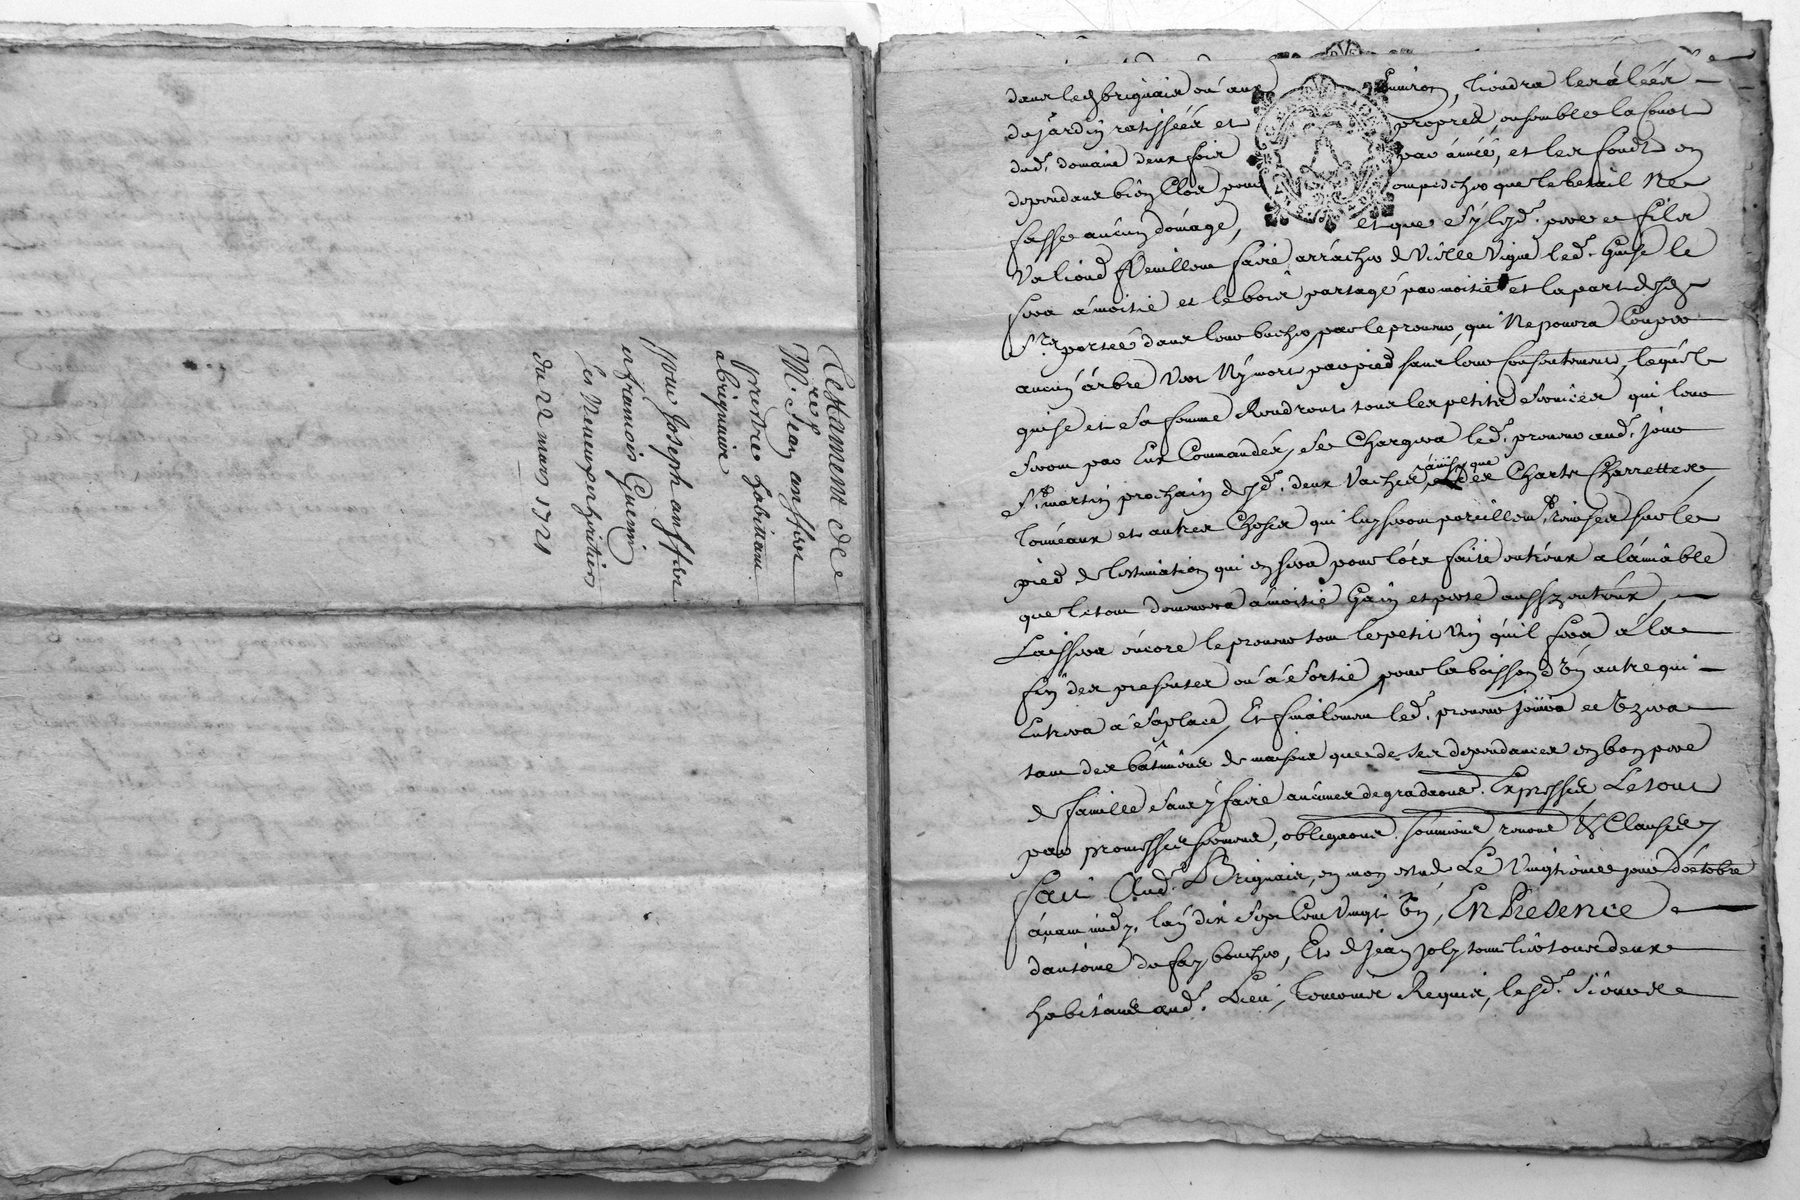 Testament de
M.re Jean anffre
prestre habittant
a brignaire
pour Joseph anffre
et francois Guerin
ses Neveux et heritiers
du 22 mars 1721
dans led. brignais ou aux environ, tiendra les alëés
de jardin ratisséés et propres ensemble la Court
dud. domaine deux fois par année, et les fondz en
dependans bien Clos pour empecher que le betail Ne
fasse aucun domage, et que sy lesd. pere et fils
Valioud Veuillent faire arracher de Vielle Vigne led. Guise le
fera a moitié et le bois partagé par moitié et la part desd.
S.rs portée dans leur bucher par le preneur, qui Ne poura Couper
aucun arbre Vert Ny mort par pied sans leur Consentement, lequel
guise et sa femme Rendront tous les petits services qui leur
seront par Eux Commandés, se Chargera led. preneur aud. jour
S.t martin prochain desd. deux Vaches, ainsy que des Chars Charrettes
Tonneaux et autres Choses qui luy seront pareillem.t remises sur le
pied de lestimation qui en sera pour lors faite entreux a lamiable
que le tout demeurera a moitié Gain et perte aussy entreux,
Laissera encore le preneur tout le petit Vin quil fera a la
fin des presentes ou a sa sortie pour la boisson d'Un autre qui
Entrera a sa place, Et finalement led. preneur jouira et Uzera
tant des bâtiments de maisons que de ses dependances en bon pere
de famille sans y faire aucunes degradaons. Expresses Le tout
par promesses serment, obligaons soumions, renonc. & Clauses,
fait Aud. Brignais, en mon estude Le Vingtieme jour d'octobre
avant midy, lan dix sept Cent Vingt Un, En Presence
dantoine dufay boucher, Et de Jean Joly tonnelier tous deux
habitans aud. Lieu, temoins Requis, lesd. sieurs